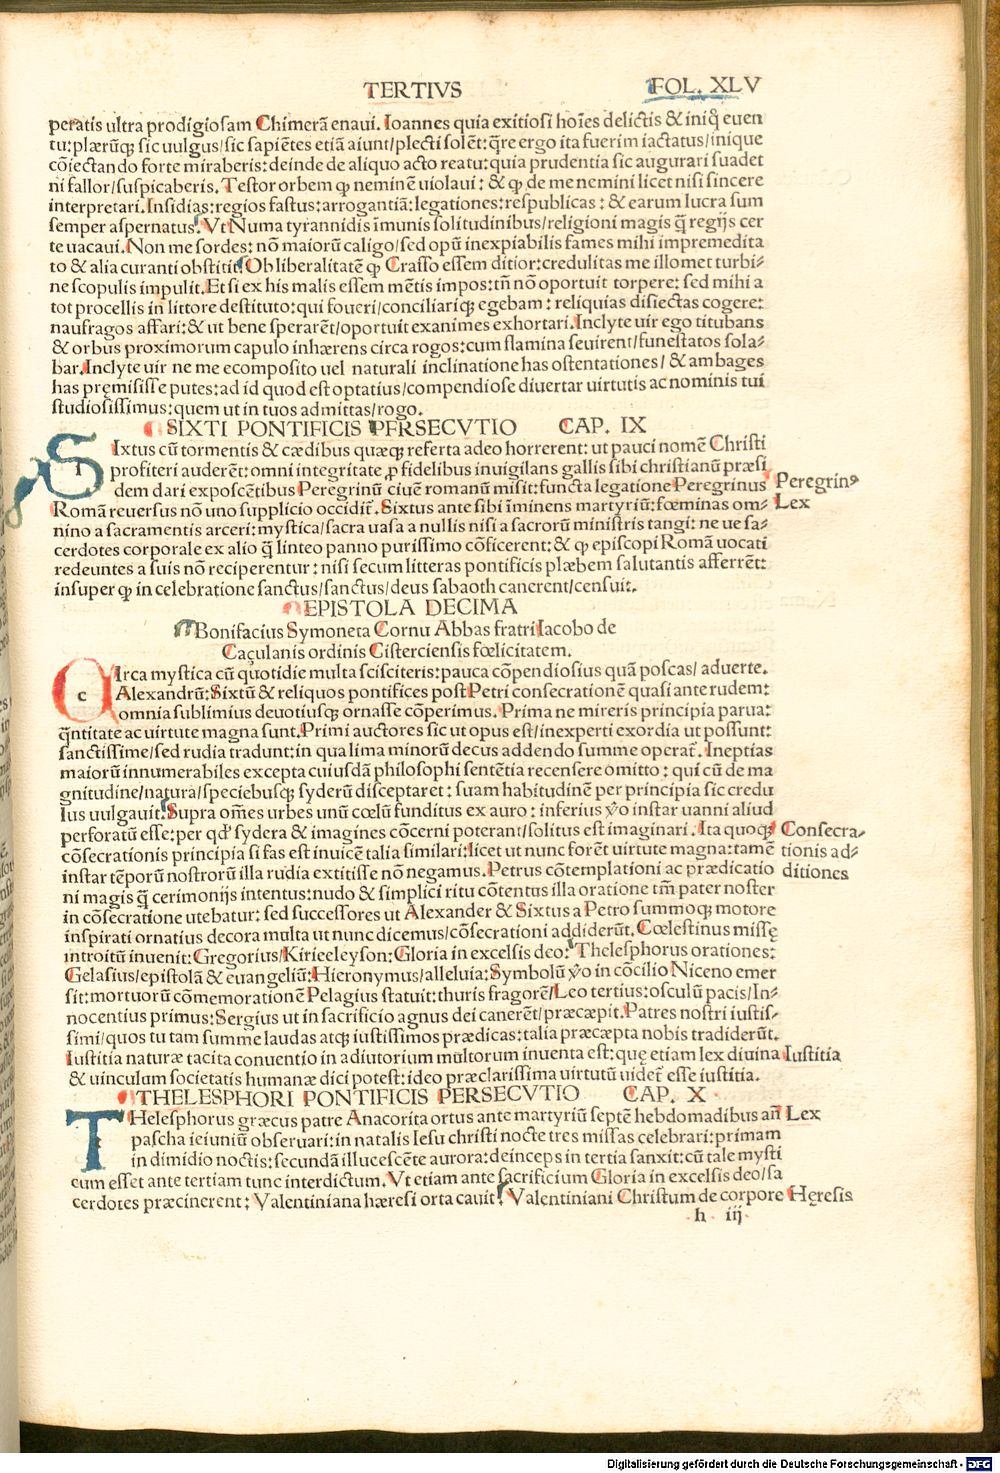 TERTIVS FOL. XLV
peratis ultra prodigiosam Chimerā enaui. Ioannes quia exitiosi hoīes delictis & iniq̄ euen
tu: plærūq; sic uulgus/sic sapiētes etiā aiunt/plecti solēt: q̄re ergo ita fuerim iactatus/inique
cōiectando forte miraberis: deinde de aliquo acto reatu: quia prudentia sic augurari suadet
ni fallor/suspicaberis. Testor orbem ꝙ neminē uiolaui: & ꝙ de me nemini licet nisi sincere
interpretari. Insidias: regios fastus: arrogantiā: legationes: respublicas: & earum lucra sum
semper aspernatus. Vt Numa tyrannidis īmunis solitudinibus/religioni magis q̄ regijs cer
te uacaui. Non me sordes: nō maiorū caligo/sed opū inexpiabilis fames mihi impremedita
to & alia curanti obstitit. Ob liberalitatē ꝙ Crasso essem ditior: credulitas me illomet turbi-
ne scopulis impulit. Et si ex his malis essem mētis impos: tn̄ nō oportuit torpere: sed mihi a
tot procellis in littore destituto: qui foueri/conciliariq; egebam: reliquias disiectas cogere:
naufragos affari: & ut bene sperarēt/oportuit exanimes exhortari. Inclyte uir ego titubans
& orbus proximorum capulo inhærens circa rogos: cum flamina seuirent/funestatos sola-
bar. Inclyte uir ne me ecomposito uel naturali inclinatione has ostentationes/ & ambages
has pręmisisse putes: ad id quod est optatius/compendiose diuertar uirtutis ac nominis tui
studiosissimus: quem ut in tuos admittas/rogo.
SIXTI PONTIFICIS PERSECVTIO CAP. IX
SIxtus cū tormentis & cædibus quæq; referta adeo horrerent: ut pauci nomē Christi
profiteri auderēt: omni integritate ꝓ fidelibus inuigilans gallis sibi christianū præsi
dem dari exposcētibus Peregrinū ciuē romanū misit: functa legatione Peregrinus
Peregrinꝰ
Romā reuersus nō uno supplicio occidit̄. Sixtus ante sibi īminens martyriū: fœminas om-
Lex
nino a sacramentis arceri: mystica/sacra uasa a nullis nisi a sacrorū ministris tangi: ne ue sa-
cerdotes corporale ex alio q̄ linteo panno purissimo cōficerent: & ꝙ episcopi Romā uocati
redeuntes a suis nō reciperentur: nisi secum litteras pontificis plæbem salutantis afferrēt:
insuper ꝙ in celebratione sanctus/sanctus/deus sabaoth canerent/censuit.
EPISTOLA DECIMA
Bonifacius Symoneta Cornu Abbas fratri Iacobo de
Caçulanis ordinis Cisterciensis fœlicitatem.
CIrca mystica cū quotidie multa scisciteris: pauca cōpendiosius quā poscas/ aduerte.
Alexandrū: Sixtū & reliquos pontifices post Petri consecrationē quasi ante rudem:
omnia sublimius deuotiusq; ornasse cōperimus. Prima ne mireris principia parua:
q̄ntitate ac uirtute magna sunt. Primi auctores sic ut opus est/inexperti exordia ut possunt:
sanctissime/sed rudia tradunt: in qua lima minorū decus addendo summe operat̄. Ineptias
maiorū innumerabiles excepta cuiusdā philosophi sentētia recensere omitto: qui cū de ma
gnitudine/natura/speciebusq; syderū disceptaret: suam habitudinē per principia sic credu
lus uulgauit. Supra om̄es urbes unū cœlū funditus ex auro: inferius v̄o instar uanni aliud
perforatū esse: per qd̓ sydera & imagines cōcerni poterant/solitus est imaginari. Ita quoq;
Consecra-
cōsecrationis principia si fas est inuicē talia similari: licet ut nunc forēt uirtute magna: tamē
tionis ad-
instar tēporū nostrorū illa rudia extitisse nō negamus. Petrus cōtemplationi ac prædicatio
ditiones
ni magis q̄ cerimonijs intentus: nudo & simplici ritu cōtentus illa oratione tm̄ pater noster
in cōsecratione utebatur: sed successores ut Alexander & Sixtus a Petro summoq; motore
inspirati ornatius decora multa ut nunc dicemus/cōsecrationi addiderūt. Cœlestinus missę
introitū inuenit: Gregorius/Kirieeleyson: Gloria in excelsis deo: Thelesphorus orationes:
Gelasius/epistolā & euangeliū: Hieronymus/alleluia: Symbolū v̄o in cōcilio Niceno emer
sit: mortuorū cōmemorationē Pelagius statuit: thuris fragorē/Leo tertius: osculū pacis/In-
nocentius primus: Sergius ut in sacrificio agnus dei canerēt/præcæpit. Patres nostri iustis-
simi/quos tu tam summe laudas atq; iustissimos prædicas: talia præcæpta nobis tradiderūt.
Iustitia naturæ tacita conuentio in adiutorium multorum inuenta est: quę etiam lex diuina
Iustitia
& uinculum societatis humanæ dici potest: ideo præclarissima uirtutū uidet̄ esse iustitia.
THELESPHORI PONTIFICIS PERSECVTIO CAP. X
THelesphorus græcus patre Anacorita ortus ante martyriū septē hebdomadibus an̄
Lex
pascha ieiuniū obseruari: in natalis Iesu christi nocte tres missas celebrari: primam
in dimidio noctis: secundā illucescēte aurora: deinceps in tertia sanxit: cū tale mysti
cum esset ante tertiam tunc interdictum. Vt etiam ante sacrificium Gloria in excelsis deo/sa
cerdotes præcinerent: Valentiniana hæresi orta cauit. Valentiniani Christum de corpore
Hęresis
h iij
Digitalisierung gefördert durch die Deutsche Forschungsgemeinschaft - DFG